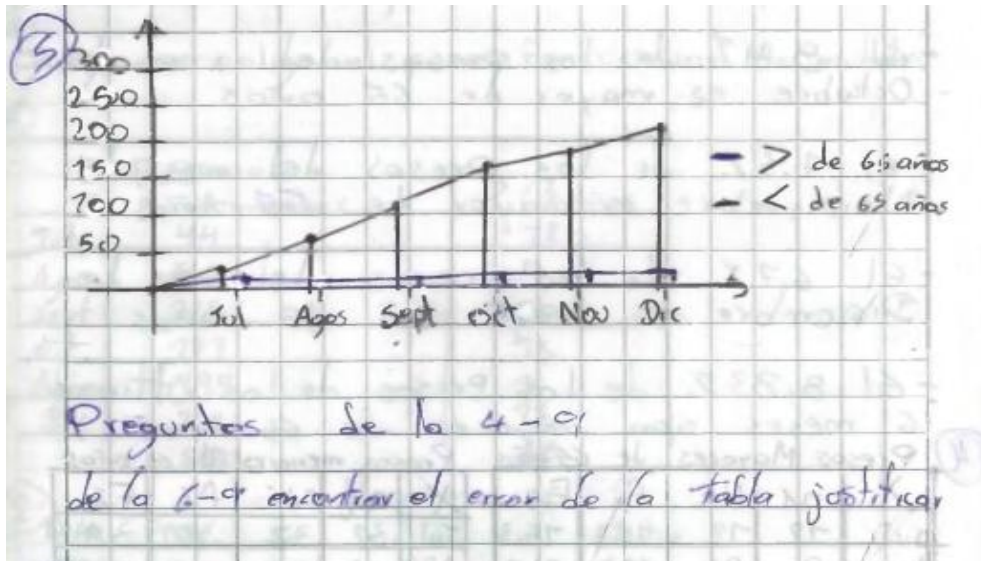 3
300
250
200
150
100
50
Jul Agos Sept oct Nov Dic
> de 65 años
< de 65 años
Preguntas de la 4-9
de la 6-9 encontrar el error de la tabla justificar